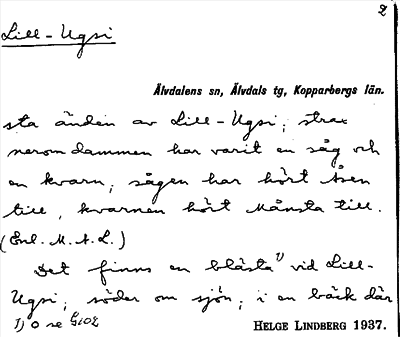 2
Lill-Ugsi
Älvdalens sn, Älvdals tg, Kopparbergs län.
sta änden av Lill-Ugsi; strax
nerom dammen har varit en såg och
en kvarn; sågen har hört Åsen
till, kvarnen hört Månsta till.
(Enl. M. A. L.)
Det finns en blästa 1) vid Lill-
Ugsi, söder om sjön; i en bäck där
1) o se
HELGE LINDBERG 1937.